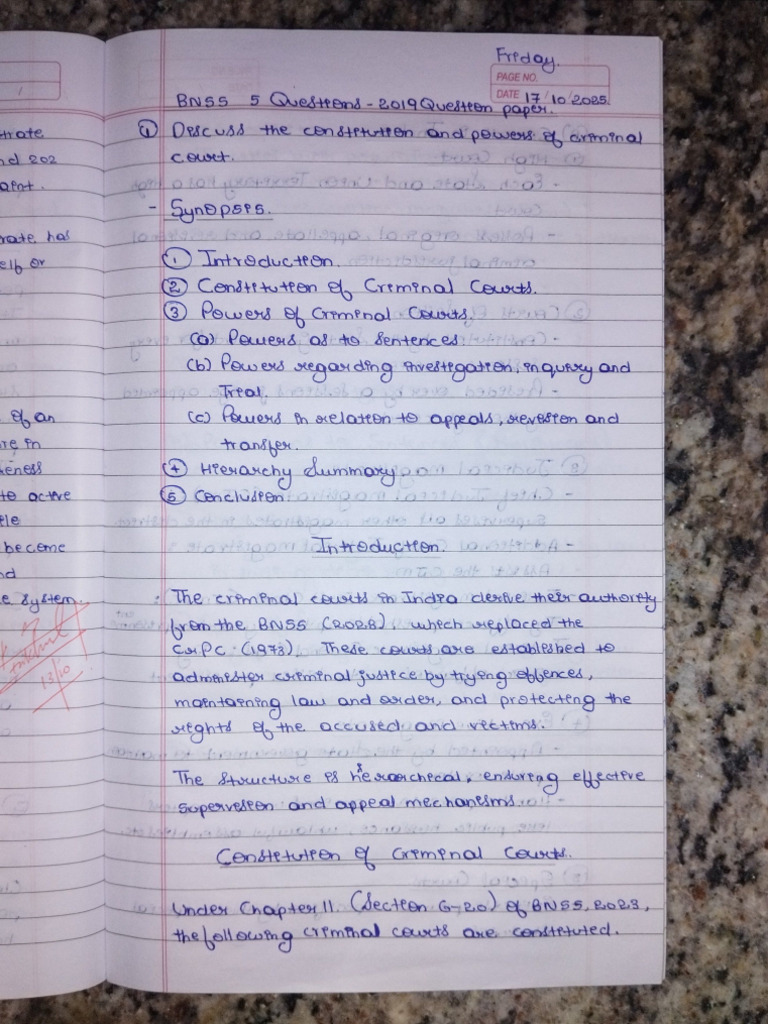 Friday.
PAGE NO.
DATE 17/10/2025
BNSS 5 Questions - 2019 Question paper.
① Discuss the constitution and powers of criminal
court.
- Synopsis.
① Introduction.
② Constitution of Criminal Courts.
③ Powers of Criminal Courts.
(a) Powers as to sentences.
(b) Powers regarding investigation, inquiry and
Trial.
(c) Powers in relation to appeals, revision and
transfer.
④ Hierarchy Summary
⑤ Conclusion.
Introduction.
: The criminal courts in India derive their authority
from the BNSS (2023), which replaced the
Cr.P.C. (1973). These courts are established to
administer criminal justice by trying offences,
maintaining law and order, and protecting the
rights of the accused and victims.
The structure is hierarchical, ensuring effective
supervision and appeal mechanisms.
Constitution of Criminal Courts.
Under Chapter II (Section 6-20) of BNSS, 2023,
the following criminal courts are constituted.
trate
nd 202
aint.
rate has
elf or
of an
re in
to active
become
nd
e system.
13/10